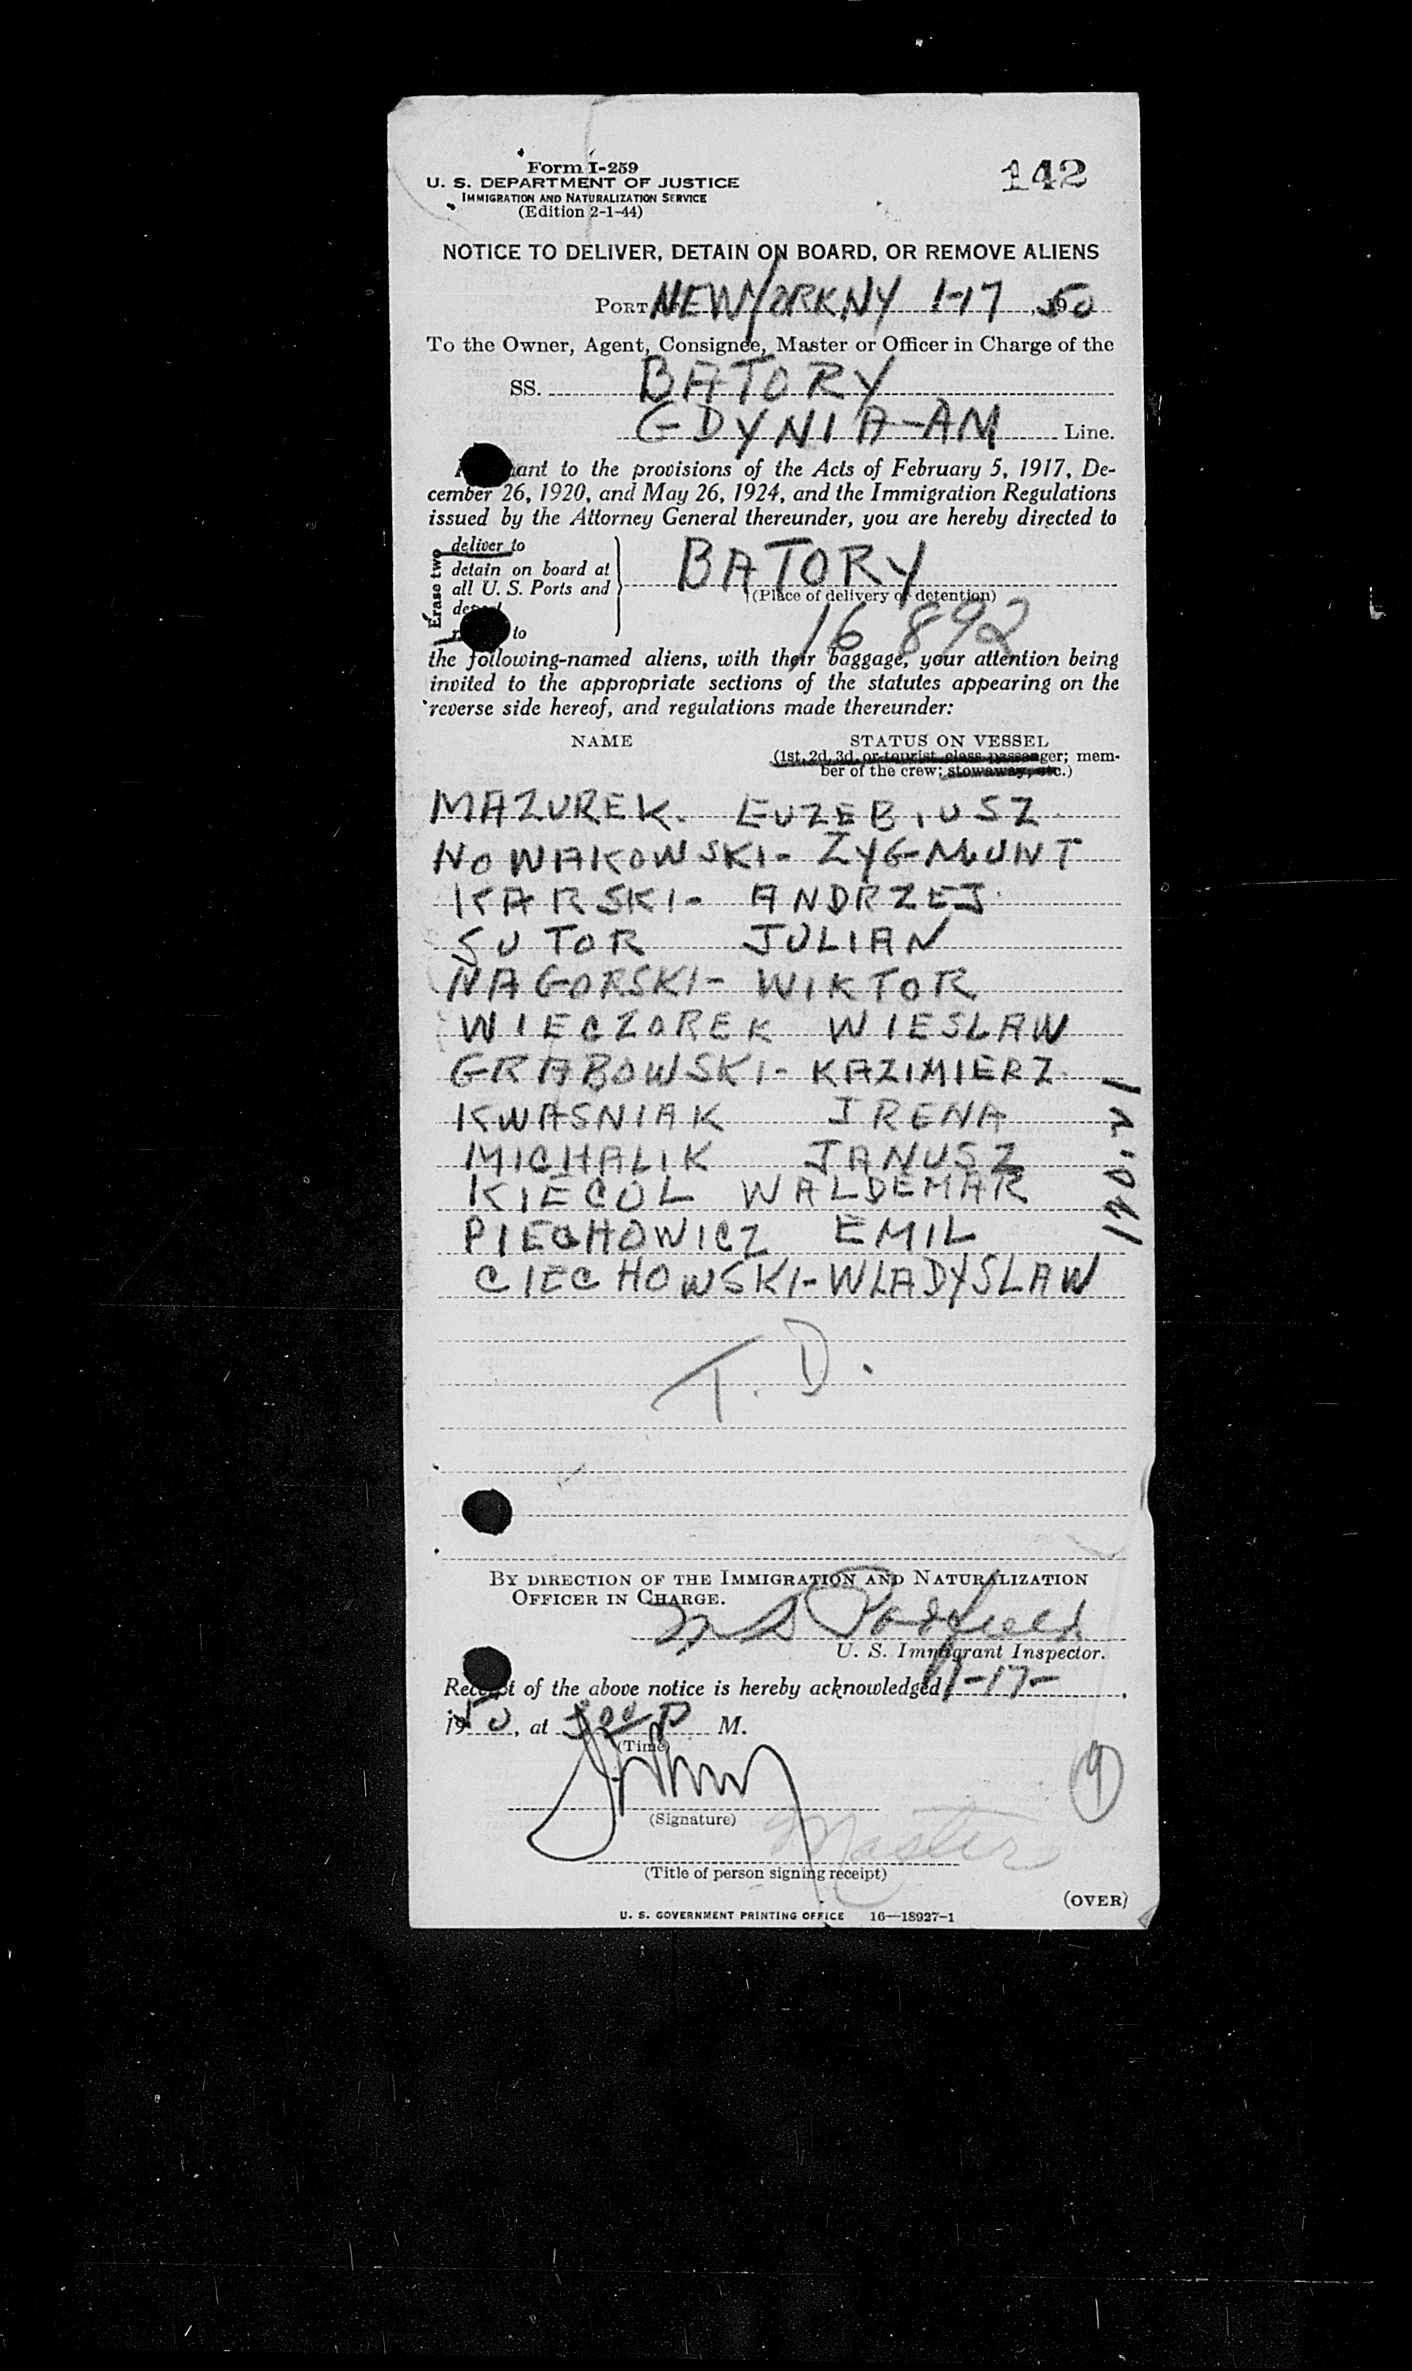 Form I-259
U. S. DEPARTMENT OF JUSTICE
IMMIGRATION AND NATURALIZATION SERVICE
(Edition 2-1-44)
142
NOTICE TO DELIVER, DETAIN ON BOARD, OR REMOVE ALIENS
PORT NEW YORK NY 1-17, 1950
To the Owner, Agent, Consignee, Master or Officer in Charge of the
SS. BATORY
GDYNIA-AM Line.
to the provisions of the Acts of February 5, 1917, De-
cember 26, 1920, and May 26, 1924, and the Immigration Regulations
issued by the Attorney General thereunder, you are hereby directed to
Erase two
deliver to
detain on board at
all U. S. Ports and
to
BATORY
(Place of delivery or detention)
16 892
the following-named aliens, with their baggage, your attention being
invited to the appropriate sections of the statutes appearing on the
reverse side hereof, and regulations made thereunder:
NAME STATUS ON VESSEL
(1st, 2d, 3d, or tourist class passenger; mem-
ber of the crew; stowaway, etc.)
MAZUREK. EUZEBIUSZ
NOWAKOWSKI- ZYGMUNT
KARSKI- ANDRZEJ
SUTOR JULIAN
NAGORSKI- WIKTOR
WIECZOREK WIESLAW
GRABOWSKI- KAZIMIERZ
KWASNIAK IRENA
MICHALIK JANUSZ
KIECOL WALDEMAR
PIECHOWICZ EMIL
CIECHOWSKI-WLADYSLAW
T. D.
BY DIRECTION OF THE IMMIGRATION AND NATURALIZATION
OFFICER IN CHARGE.
Padfield
U. S. Immigrant Inspector.
Receipt of the above notice is hereby acknowledged 1-17-,
1950, at 300 P M.
(Time)
(Signature)
Master
(Title of person signing receipt)
9
(OVER)
U. S. GOVERNMENT PRINTING OFFICE 16—18927-1